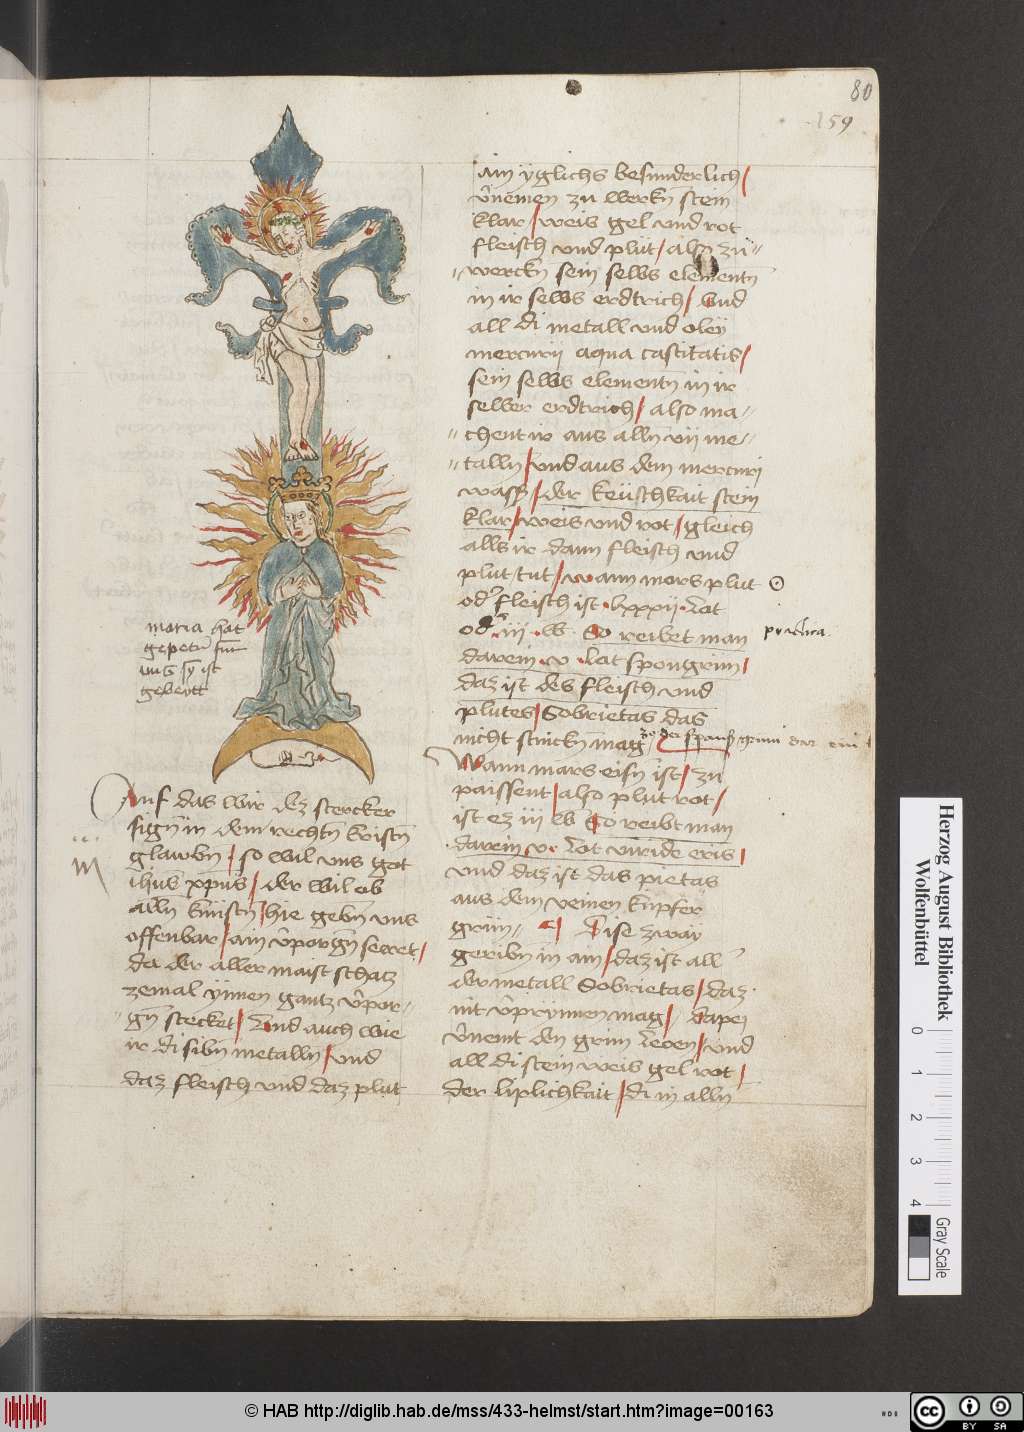 80
159
maria hat
gepetn fur
uns sy ist
gebertt
Auf das wir dez stercker
sign in dem rechtn kristn
glawbn / so wil uns got
ihus xpus / der wil ob
alln kunstn / hie gebn uns
offenbar / ain vporgn secret /
da der aller maist schatz
zemal ynnen gantz vpor-
gn stecket / Und auch wie
ir di sibn metalln / und
daz fleisch und daz plut
ain yglichs besunderlich /
vnemen zu werkn stein
klar / weis gel und rot
fleisch und plut / also zu
werckn sein selbs elementn
in ir selbs erdtrich / und
all di metall und oley
mercurij aqua castitatis /
sein selbs elementn in ir
selber erdtrich / also ma
chent ir aus alln vii me
talln / und aus dem mercurj
wassr / der keuschkait stein
klar / weis und rot / gleich
alls ir dann fleisch und
plut tut / wann mars plut
od fleisch ist lxxxii lot
od iii lb So reibet man
practica
darein v lot spongrun /
daz ist des fleisch und
plutes / Sobrietas das
nicht stinckn mag
Wann mars eisn ist / zu
paissent / also plut rot /
ist ez iii lb So reibt man
darein v lot viride eris /
und daz ist das pietas
aus dem reinen kupfer
grun Dise zway
geribn in ain / daz ist all
der metall Sobrietas / daz
nit vprynnen mag / dapej
vnemt den grun leoen / und
all di stein weis gel rot /
der liplichkait / di in alln
Herzog August Bibliothek
Wolfenbüttel
0 1 2 3 4
Gray Scale
© HAB http://diglib.hab.de/mss/433-helmst/start.htm?image=00163
cc BY SA